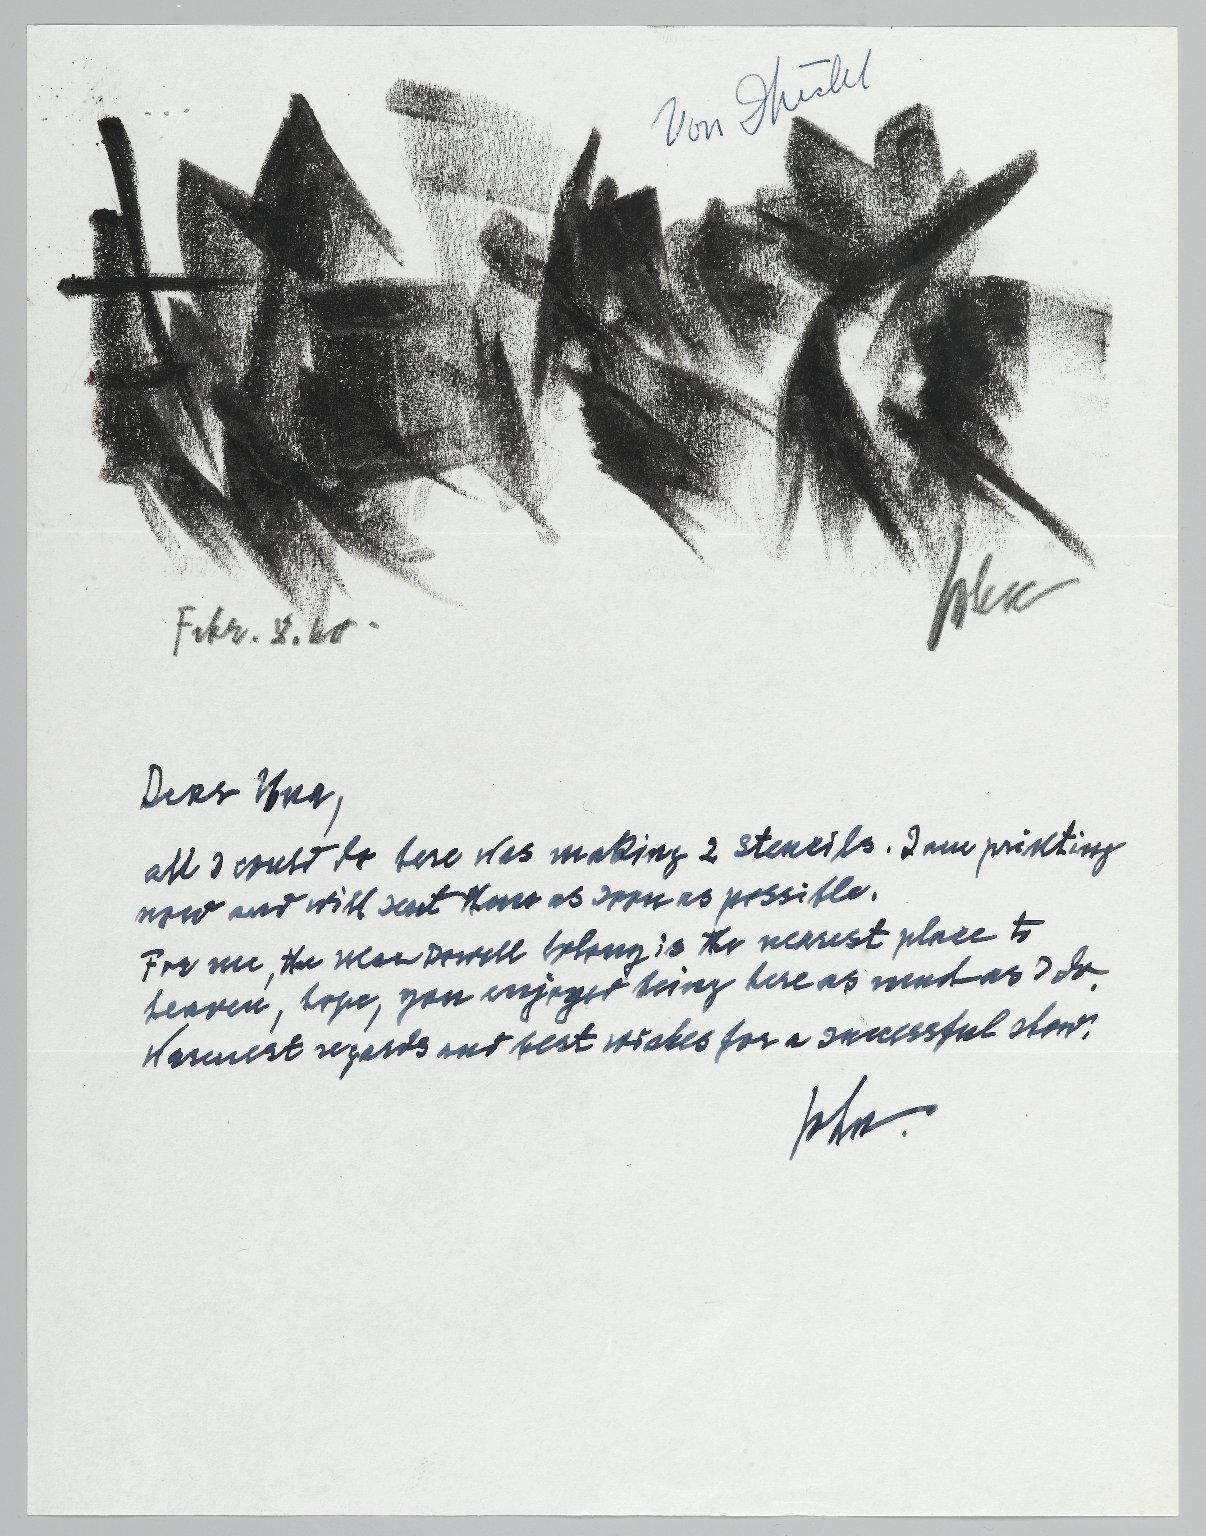 Von
Febr. 8. 60.
John
Dear Una,
all I could do here was making 2 stencils. I am printing
now and will sent them as soon as possible.
For me, the Mac Dowell Colony is the nearest place to
heaven, hope, you enjoyed being here as much as I do.
Warmest regards and best wishes for a successful show!
John.